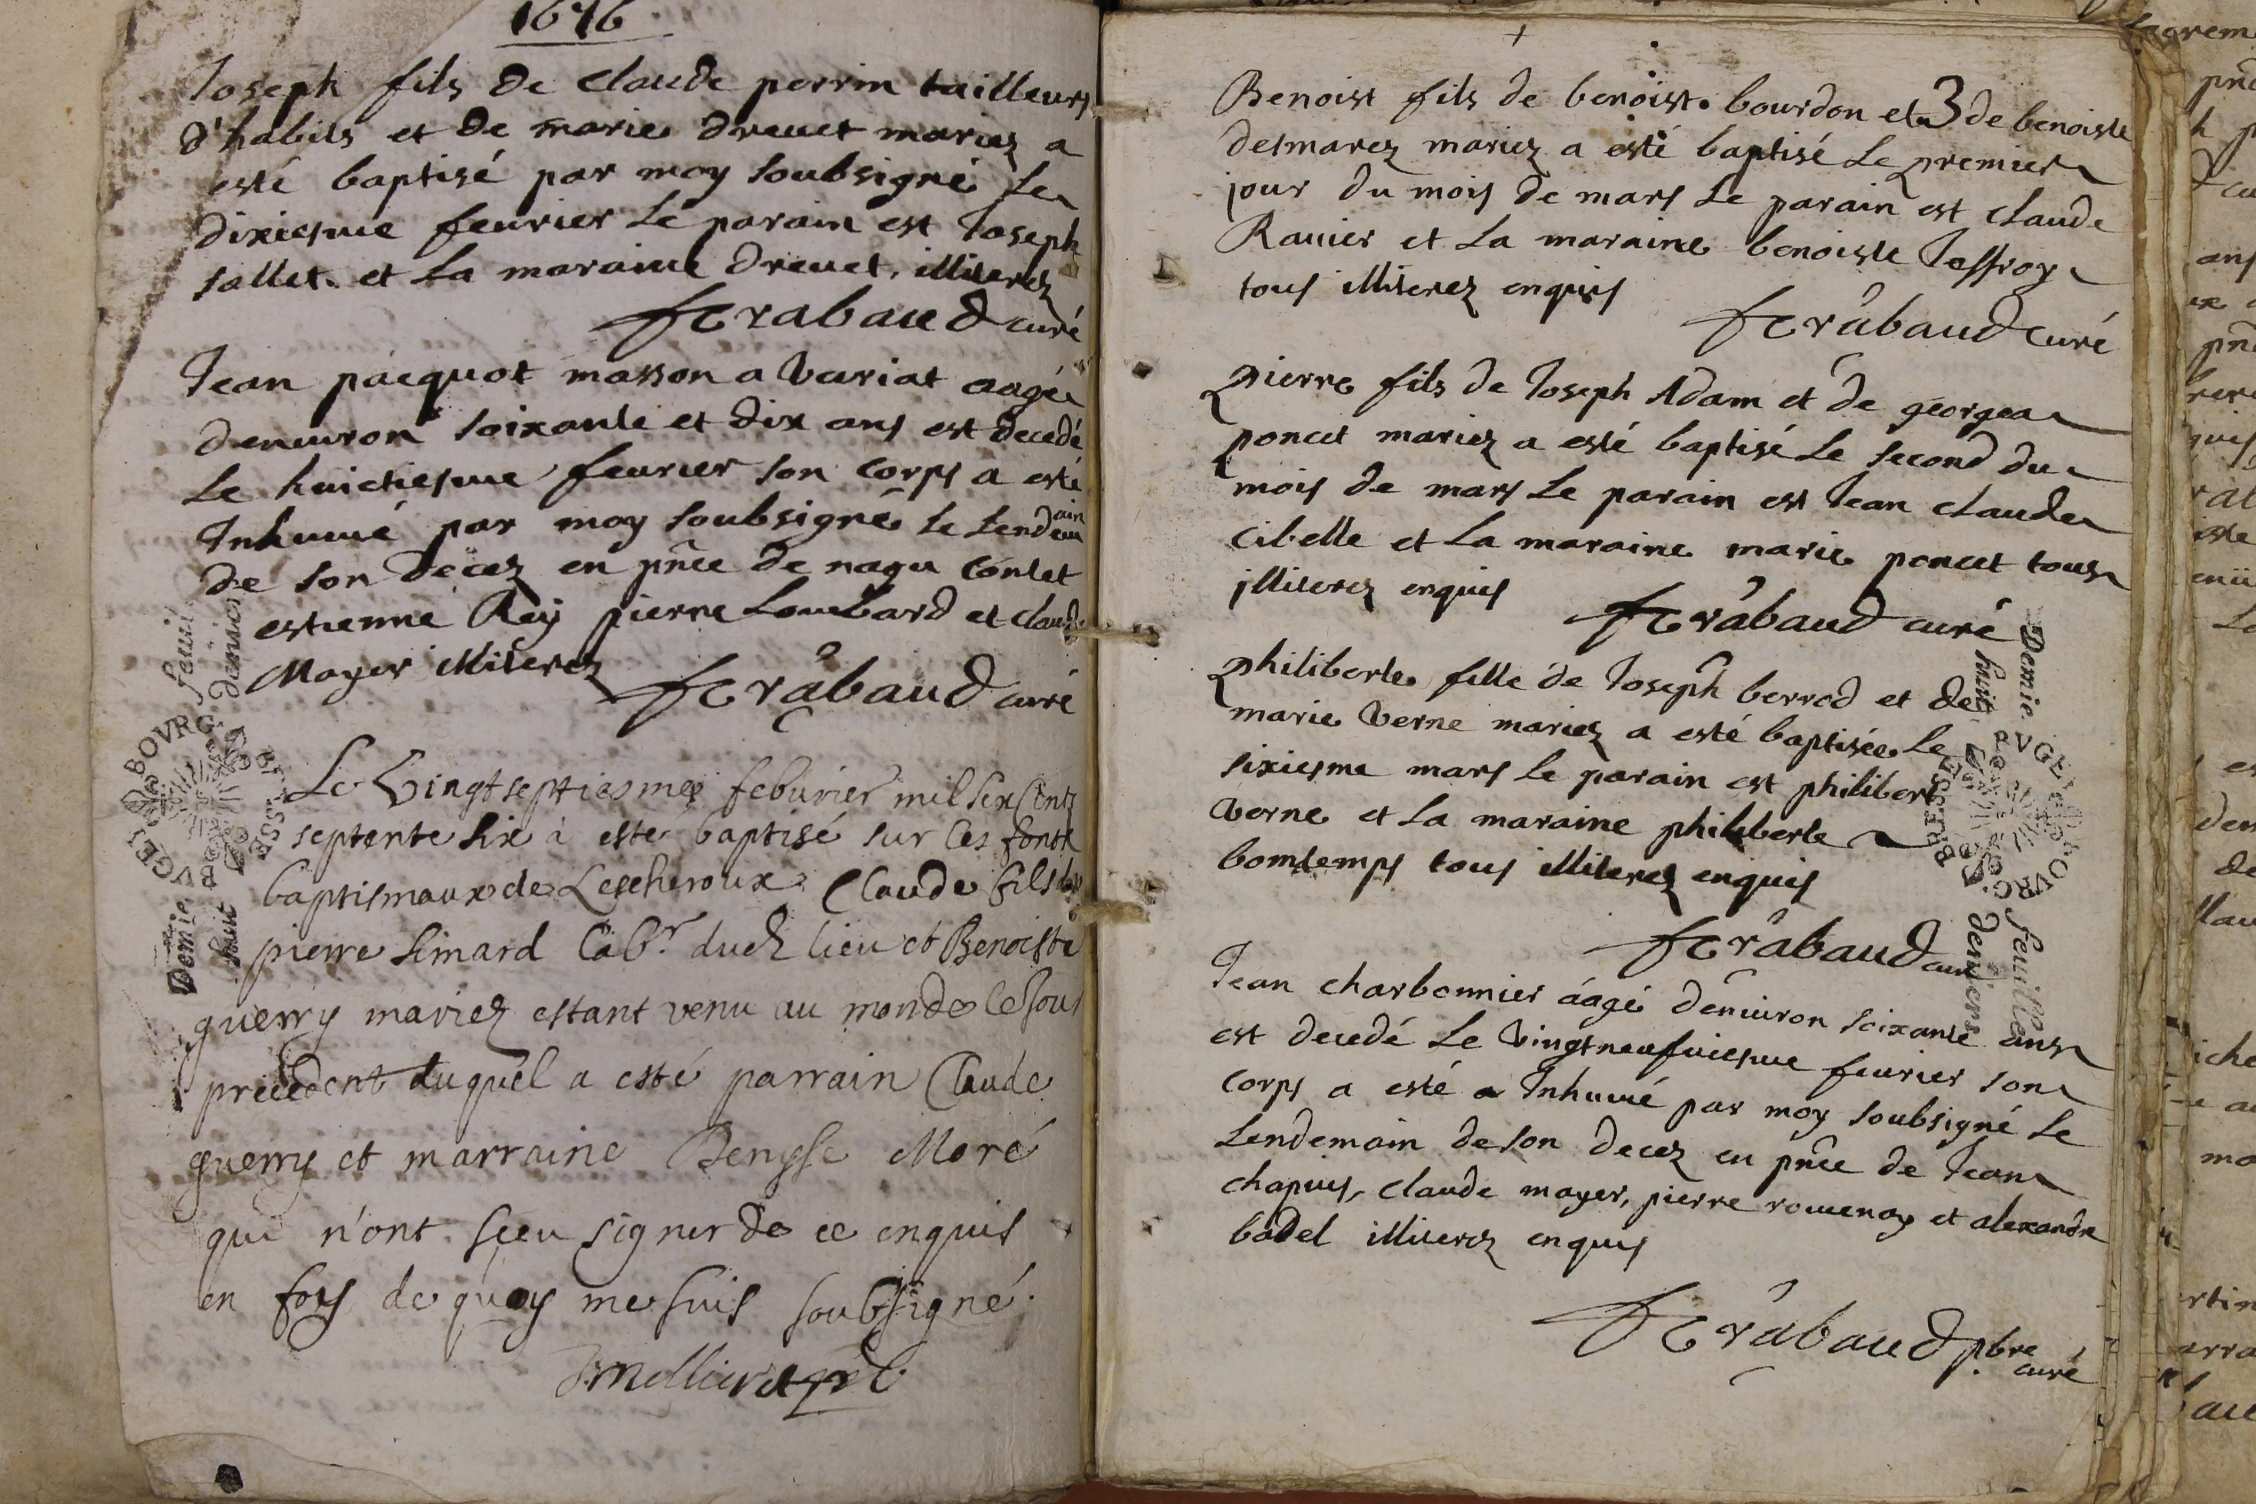 1676
Joseph fils de claude perrin tailleurs
d'habits et de marie drevet mariez a
esté baptisé par moy soubsigné le
dixiesme feurier le parain est Joseph
sallet et la maraine drevet, illiterez
Trabaud curé
Jean pacquot masson a Variat aagé
denuiron soixante et dix ans est decedé
Le huictiesme feurier son corps a esté
Inhumé par moy soubsigné le Lendemain
de son decez en pñce de Contet
estienne Rey pierre Lombard et claude
Mayer illiterez
Trabaud curé
Le Vingtseptiesme feburier mil six Centz
septente six à esté baptisé sur les fontz
baptismaux de Lescheroux Claude fils de
pierre simard labr. dud lieu et Benoiste
guerry mariez estant venu au monde le jour
precedent duquel a esté parrain Claude
guerry et marraine Denyse Moré
qui n'ont sceu signer de ce enquis
en foy de quoy me suis soubsigné.
BOVRG BRESSE BVGEY
Demie feuil
huit deniers
Benoist fils de benoist bourdon et de benoiste
desmarez mariez a esté baptisé Le premier
jour du mois de mars Le parain est claude
Rauier et La maraine benoiste Jeffroy
tous illiterez enquis
Trabaud Curé
pierre fils de Joseph Adam et de georgea
poncet mariez a esté baptisé Le second du
mois de mars Le parain est Jean claude
Cibelle et La maraine marie poncet tous
illiterez enquis
Trabaud curé
philiberte fille de Joseph berrod et de
marie Verne mariez a esté baptisée Le
sixiesme mars le parain est philibert
Verne et La maraine philiberte
bomtemps tous illiterez enquis
Trabaud curé
Jean charbonnier áagé denuiron soixante ans
est decedé Le Vingtneufuiesme feurier son
Corps a esté a Inhumé par moy soubsigné Le
Lendemain de son decez en pñce de Jean
chapuis, claude mayer, pierre rouuenoy et alexandre
badel illiterez enquis
Trabaud pbre
curé
Demie feuille
huit deniers
BVGEY BOVRG BRESSE